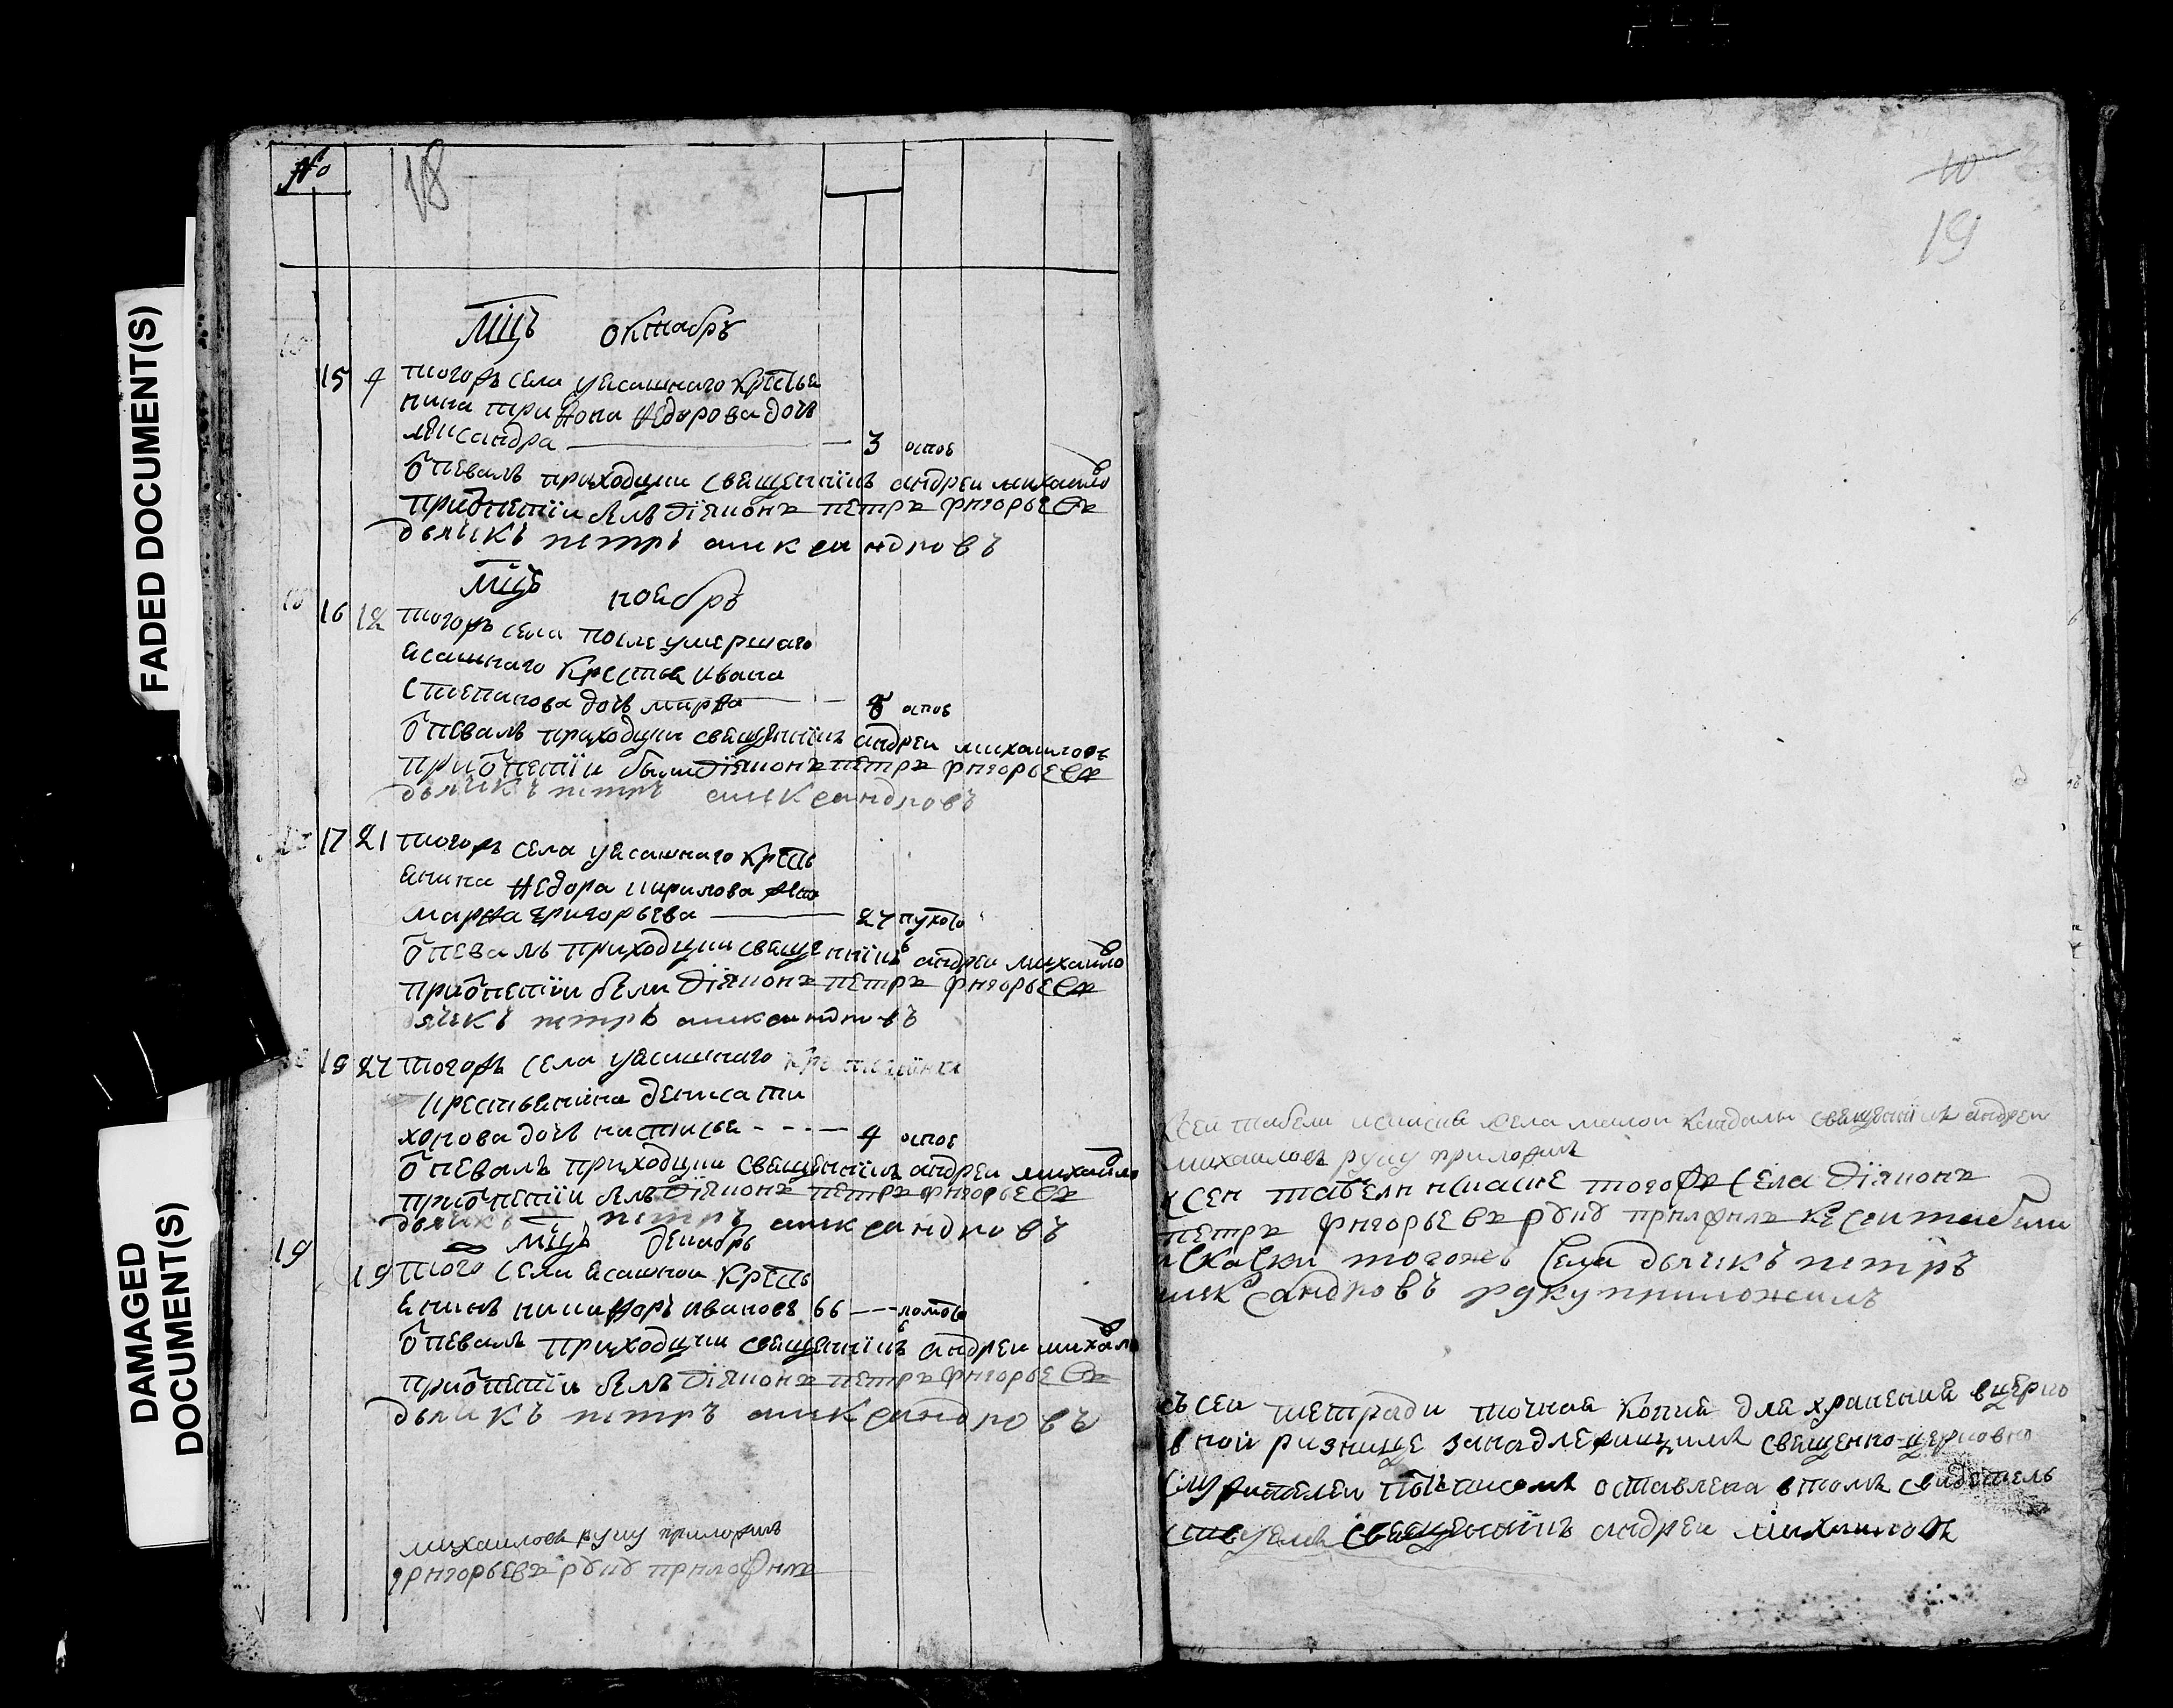 FADED DOCUMENT(S)
DAMAGED DOCUMENT(S)
№
18
Мцъ октябръ
15 4 тогожъ села уясашнаго крстья
нина трифона федорова дочь
3 оспою
опевалъ приходцки священнікъ андреи михаило
приопетіи былъ діяконъ петръ григорьевъ
дьячикъ петръ александровъ
Мцъ ноябръ
16 12 тогожъ села после умершаго
ясашнаго крестья ивана
степанова дочь марфа оспою
опевалъ приходцки священнікъ андреи михаиловъ
приопетіи были діяконъ петръ григорьевъ
дьячикъ петръ александровъ
17 21 тогожъ села уясашнаго крсть
янина федора кирилова жена
марфа григорьева 27
опевалъ приходцки священнікъ андреи михаило
приопетіи были діяконъ петръ григорьевъ
дячикъ петръ александровъ
18 27 тогожъ села уясашнаго
крестьянина дениса ти
хонова дочь настасья 4 оспою
опевалъ приходцки священнікъ андреи михаило
приопетіи былъ діяконъ петръ григорьевъ
дьячикъ петръ александровъ
Мцъ декабръ
19
19 того села ясашнои крсть
янинъ никифоръ ивановъ 66
опевалъ приходцки священнікъ андреи михаило
приопетіи былъ діяконъ петръ григорьевъ
дьячикъ петръ александровъ
михаиловъ руку приложилъ
григорьевъ руку приложилъ
10
19
сеи табели села священникъ андреи
михаиловъ руку приложилъ
к сеи табели тогожъ села діяконъ
петръ григорьевъ руку приложилъ к сеи табели
тогожъ села дьячикъ петръ
александровъ руку приложилъ
съ сеи тетради точная копия для хранения вцерко
вной ризнице занадлежащимъ священно-церковно
служителеи потписомъ оставлена втомъ свидетель
ствуемъ священнікъ андреи михаиловъ